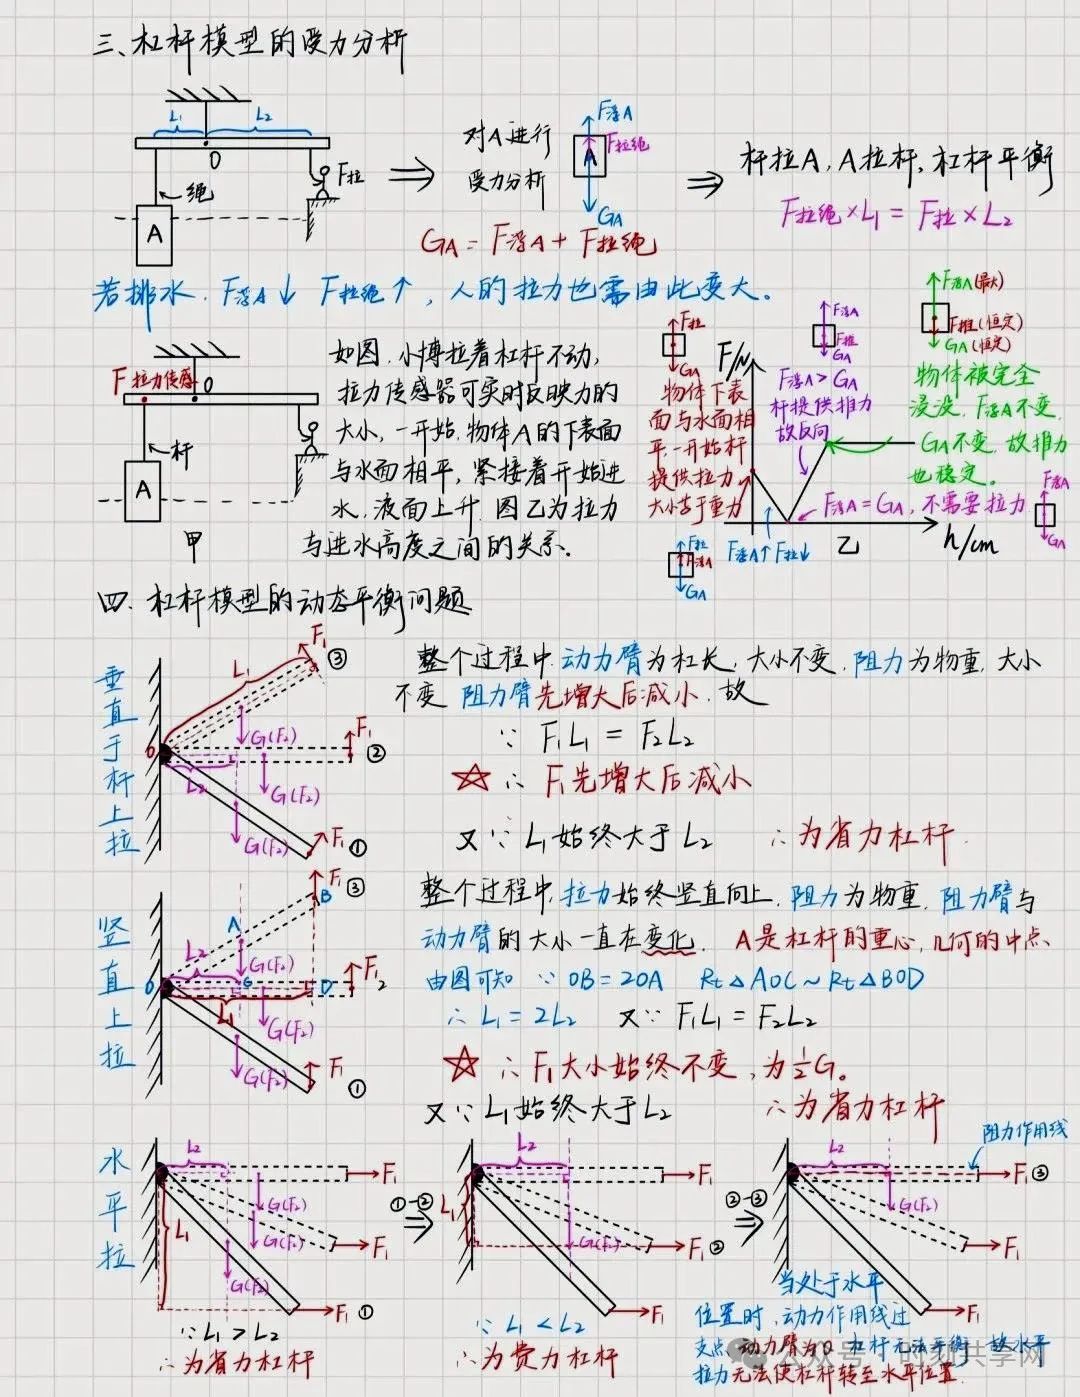 三、杠杆模型的受力分析
L₁ L₂
O
绳
F拉
A
对A进行
受力分析
F浮A
F拉绳
A
GA
GA = F浮A + F拉绳
杆拉A, A拉杆, 杠杆平衡
F拉绳 × L₁ = F拉 × L₂
若排水, F浮A↓ F拉绳↑, 人的拉力也需由此变大。
F拉力传感 O
杆
A
甲
如图, 小博拉着杠杆不动,
拉力传感器可实时反映力的
大小, 一开始, 物体A的下表面
与水面相平, 紧接着开始进
水, 液面上升, 图乙为拉力
与进水高度之间的关系。
F拉
GA
物体下表
面与水面相
平, 一开始杆
提供拉力,
大小等于重力
F/N
F浮A
F推
GA
F浮A > GA
杆提供推力
故反向
F浮A(最大)
F推(恒定)
GA(恒定)
物体被完全
浸没, F浮A不变,
GA不变, 故推力
也稳定。
F浮A = GA, 不需要拉力
F浮A
GA
F拉
F浮A
GA
F浮A↑ F拉↓
乙
h/cm
四、杠杆模型的动态平衡问题
垂直于杆上拉
F₁ ③
L₁
G(F₂)
O
F₁
②
L₂
G(F₂)
G(F₂)
F₁ ①
整个过程中, 动力臂为杠长, 大小不变, 阻力为物重, 大小
不变 阻力臂先增大后减小, 故
∵ F₁L₁ = F₂L₂
☆ ∴ F₁先增大后减小
又∵ L₁始终大于L₂ ∴为省力杠杆.
竖直上拉
F₁ ③
B
A
L₂
G(F₂)
O C D F₂
②
L₁
G(F₂)
G(F₂)
F₁ ①
整个过程中, 拉力始终竖直向上, 阻力为物重, 阻力臂与
动力臂的大小一直在变化. A是杠杆的重心, 几何的中点
由图可知 ∵ OB = 2OA Rt△AOC ~ Rt△BOD
∴ L₁ = 2L₂ 又∵ F₁L₁ = F₂L₂
☆ ∴ F₁大小始终不变, 为½G。
又∵ L₁始终大于L₂ ∴为省力杠杆
水平拉
L₂
F₁
L₁
G(F₂)
G(F₂)
F₁
G(F₂)
F₁ ①
∵ L₁ > L₂
∴为省力杠杆
①-②
⇒
L₂
F₁
L₁
G(F₂)
F₁ ②
F₁
∵ L₁ < L₂
∴为费力杠杆
②-③
⇒
阻力作用线
L₂
F₁ ③
G(F₂)
F₁
F₁
当处于水平
位置时, 动力作用线过
支点, 动力臂为0 杠杆无法平衡, 故水平
拉力无法使杠杆转至水平位置.
公众号 · 时刻共享网